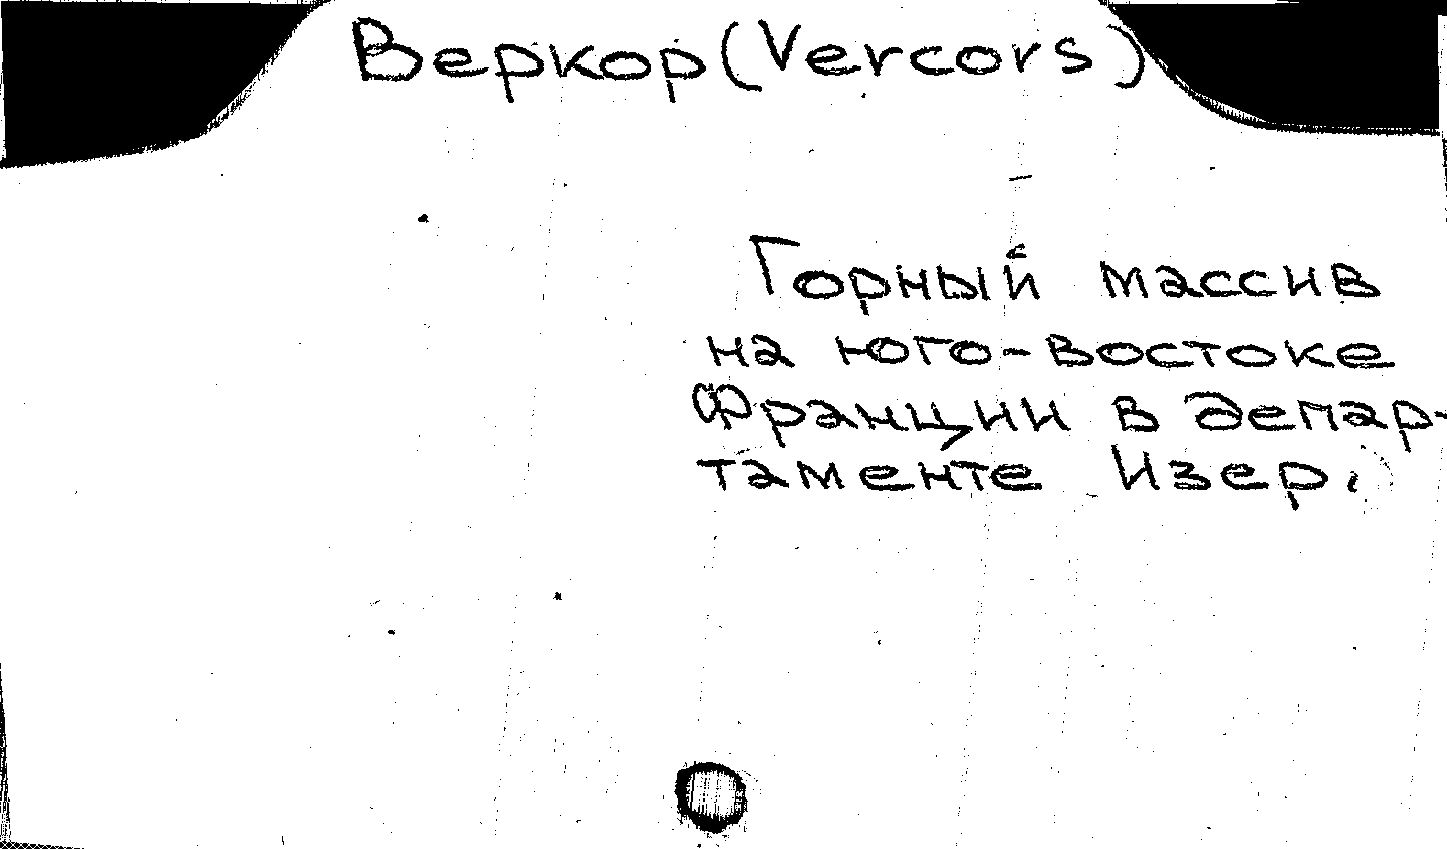 Веркор (Vercors)
Горный массив
на юго-востоке
Франции в депар-
таменте Изер.